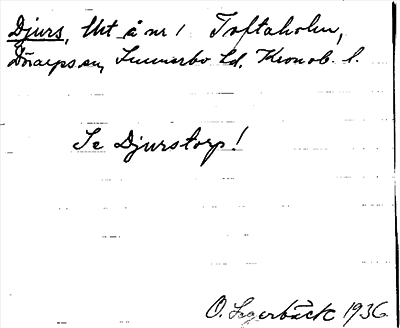 Djurs, Utt å nr 1 Toftaholm,
Dörarps sn, Sunnerbo hd, Kronob. l.
Se Djurstorp!
O. Segerbäck 1936